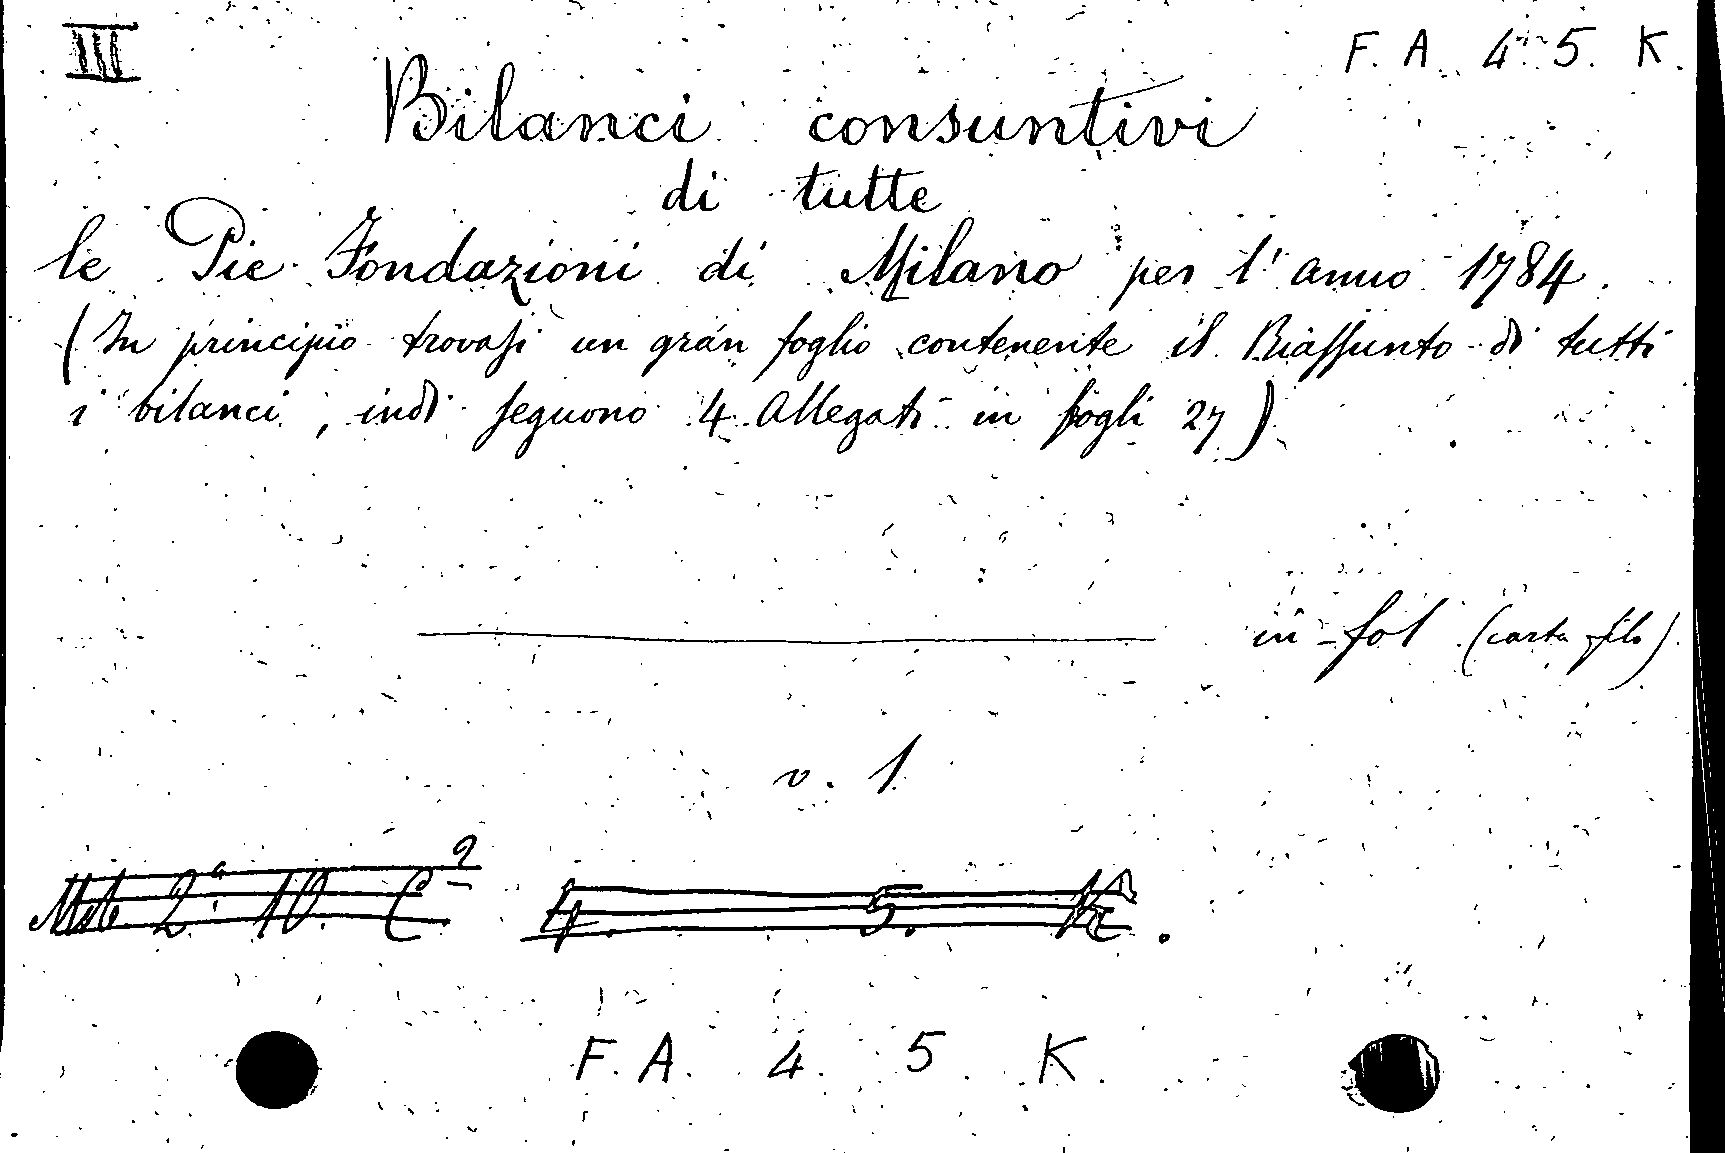 III
F. A. 4. 5. K.
Bilanci consuntivi
di tutte
le Pie Fondazioni di Milano per l'anno 1784.
(In principio trovasi un gran foglio contenente il Riassunto di tutti
i bilanci, indi seguono 4 Allegati in fogli 27)
in-fol (carta filo)
v. 1
2ª 10. C 2
4. 5. K.
F. A. 4. 5 K.